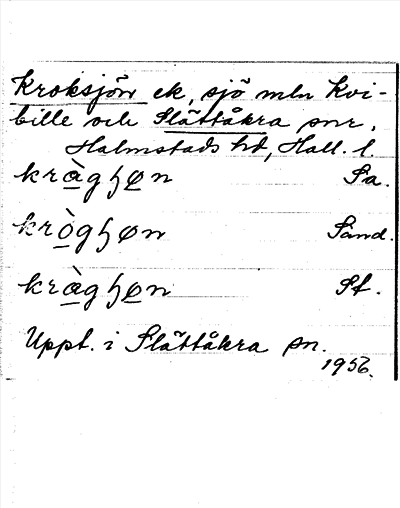 Kroksjön ek, sjö mln Kvi-
bille och Slättåkra snr,
Halmstads hd, Hall. l.
kràgɧøn Sa.
krògɧøn Sand.
kràgɧøn St.
Uppt. i Slättåkra sn.
1956.